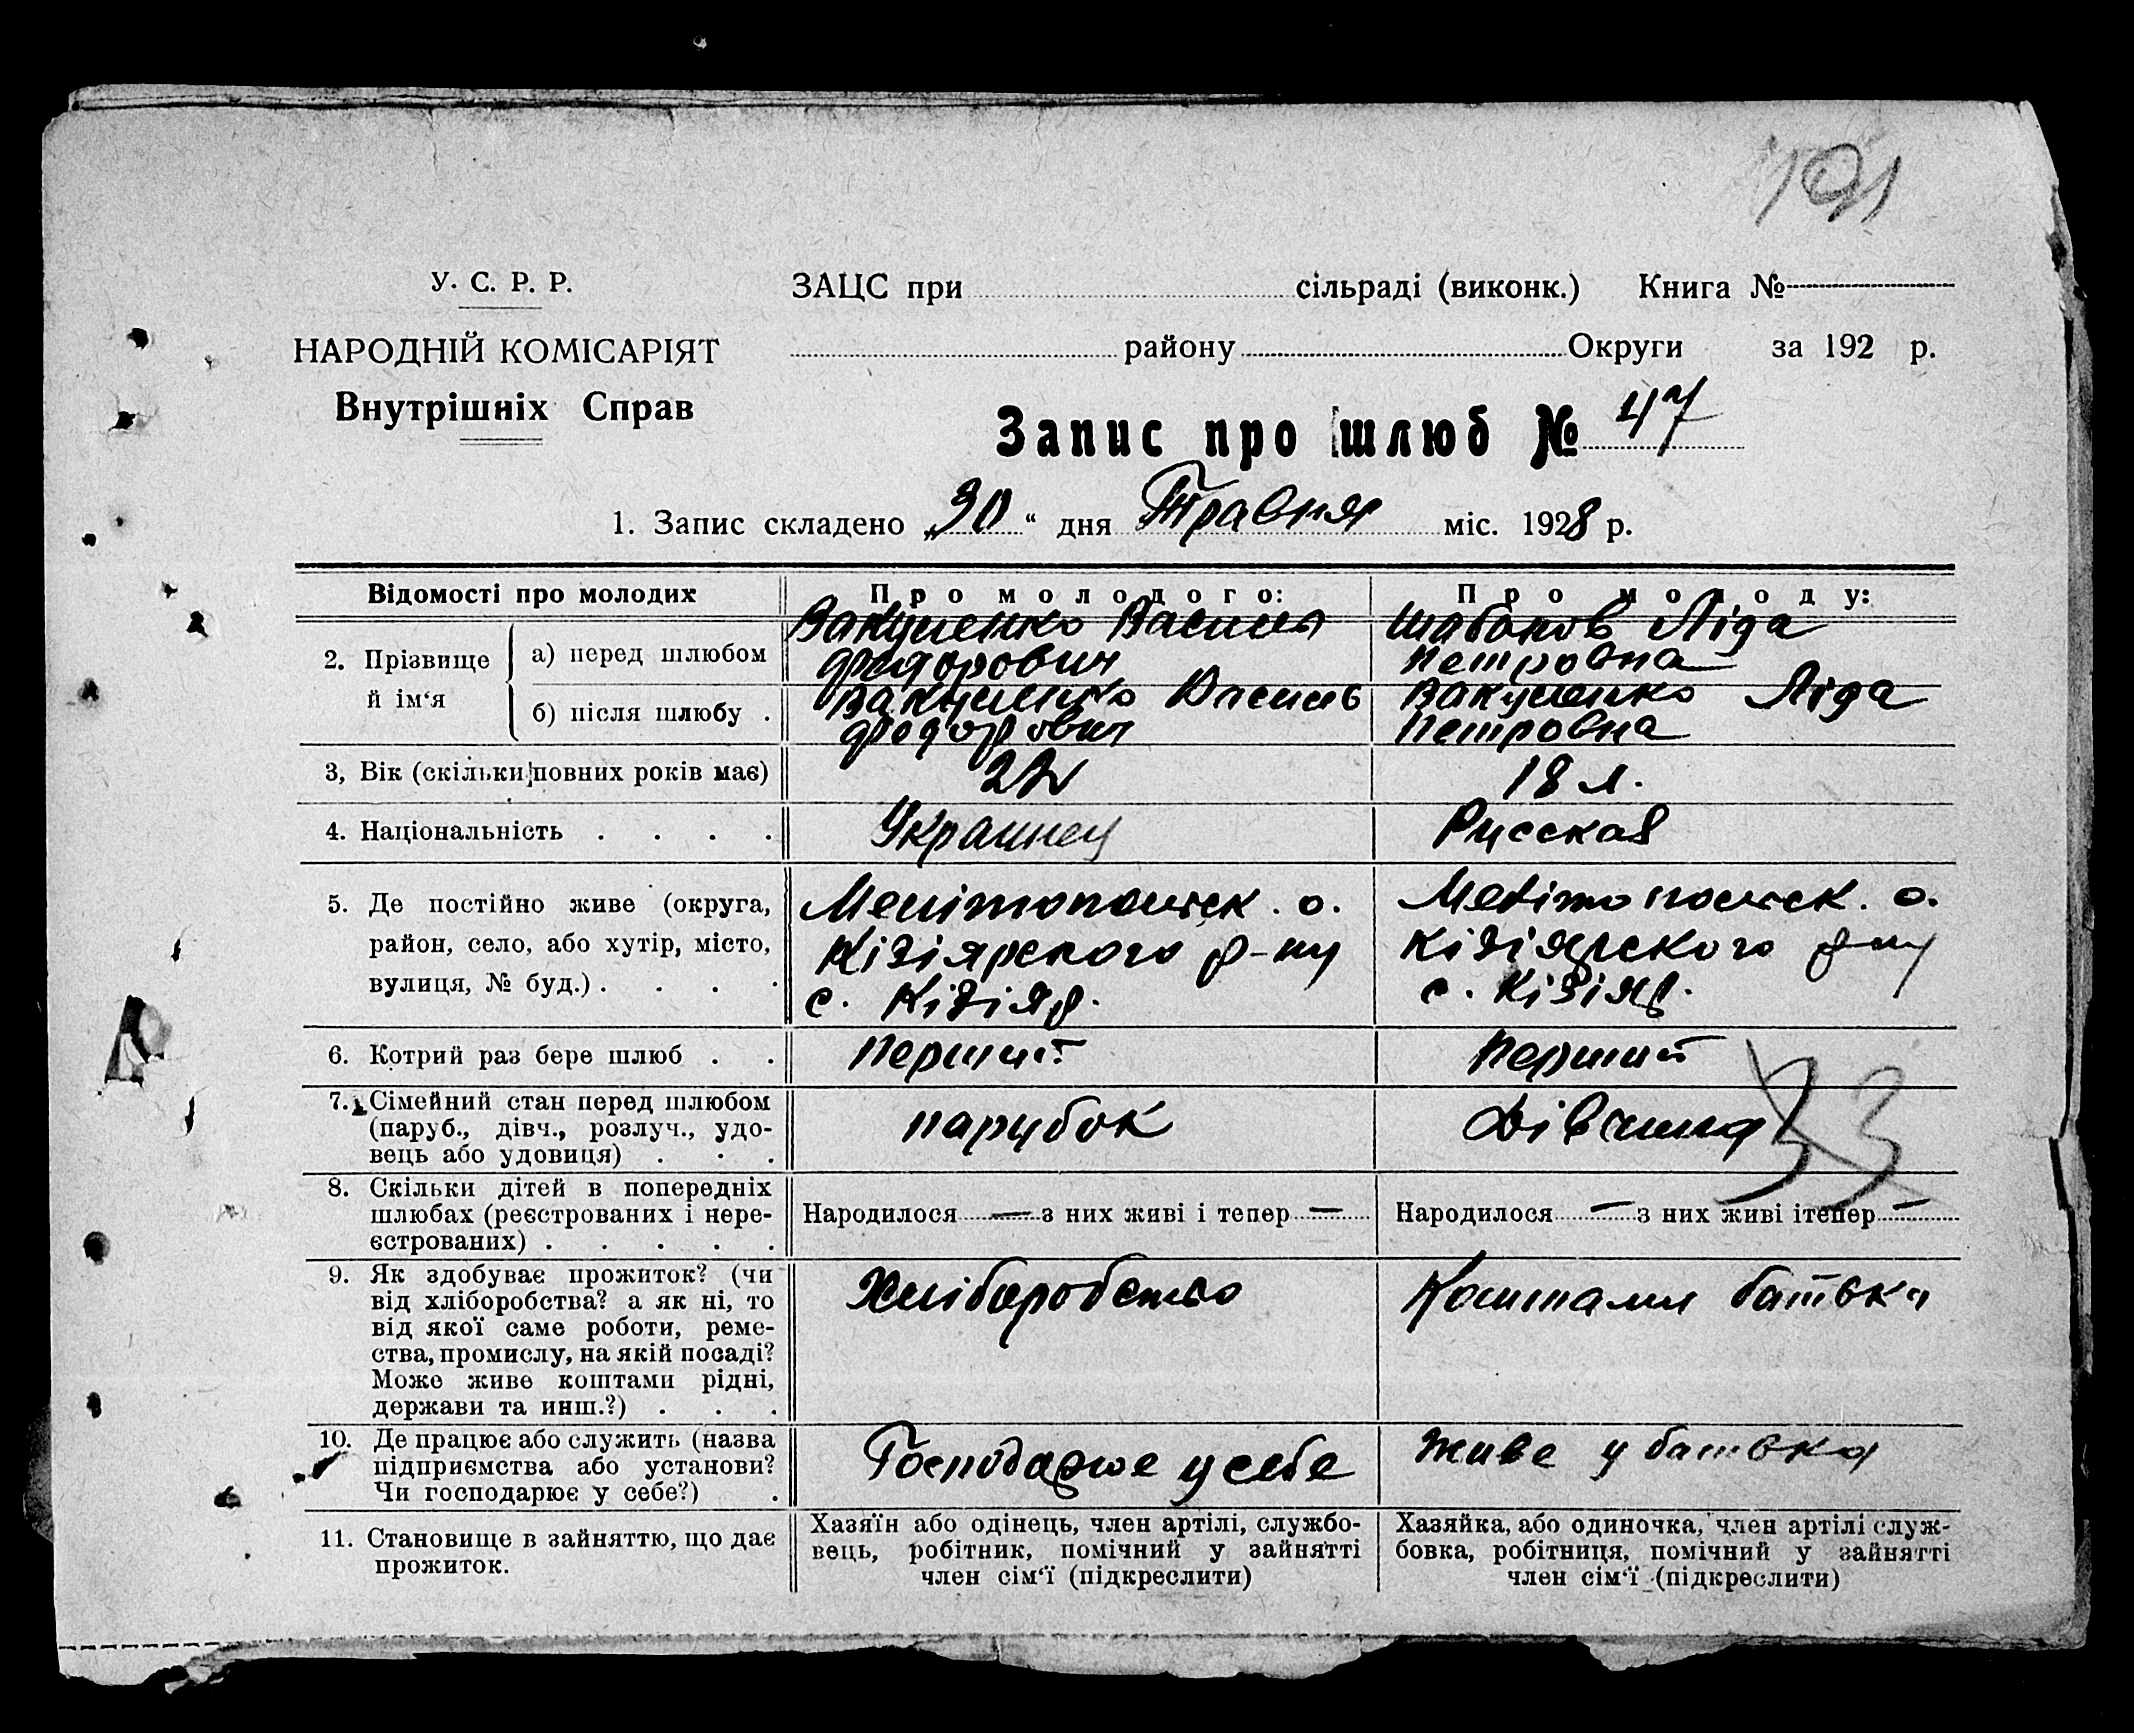 191
У. С. Р. Р.
ЗАЦС при сільраді (виконк.) Книга №
НАРОДНІЙ КОМІСАРІЯТ
району Округи за 192 р.
Внутрішніх Справ
Запис про шлюб № 47
1. Запис складено „30“ дня Травня міс. 1928 р.
Відомості про молодих
Про молодого:
Про молоду:
2. Прізвище й ім‘я
а) перед шлюбом
Вакуленко Василь
Федорович
Ліда
Петровна
б) після шлюбу .
Вакуленко Василь
Федорович
Вакуленко Ліда
Петровна
3, Вік (скільки повних років має)
18 л.
4. Національність . . . .
Украинец
Русская
5. Де постійно живе (округа,
район, село, або хутір, місто,
вулиця, № буд.) . . . .
Мелітопольск. о.
Кізіярского р-ну
с. Кізіяр.
Мелітопольск. о.
Кізіярского р-ну
с. Кізіяр.
6. Котрий раз бере шлюб . .
Перший
Перший
7. Сімейний стан перед шлюбом
(паруб., дівч., розлуч., удо-
вець або удовиця) . . .
парубок
Дівчина
33
8. Скільки дітей в попередніх
шлюбах (реєстрованих і нере-
єстрованих) . . . . .
Народилося — з них живі і тепер —
Народилося — з них живі ітепер —
9. Як здобуває прожиток? (чи
від хліборобства? а як ні, то
від якої саме роботи, реме-
ства, промислу, на якій посаді?
Може живе коштами рідні,
держави та инш.?) . . .
Хліборобство
Коштами батька
10. Де працює або служить (назва
підприємства або установи?
Чи господарює у себе?) .
Господарює у себе
Живе у батька
11. Становище в зайняттю, що дає
прожиток.
Хазяїн або одінець, член артілі, службо-
вець, робітник, помічний у зайнятті
член сім‘ї (підкреслити)
Хазяйка, або одиночка, член артілі служ-
бовка, робітниця, помічний у зайнятті
член сім‘ї (підкреслити)